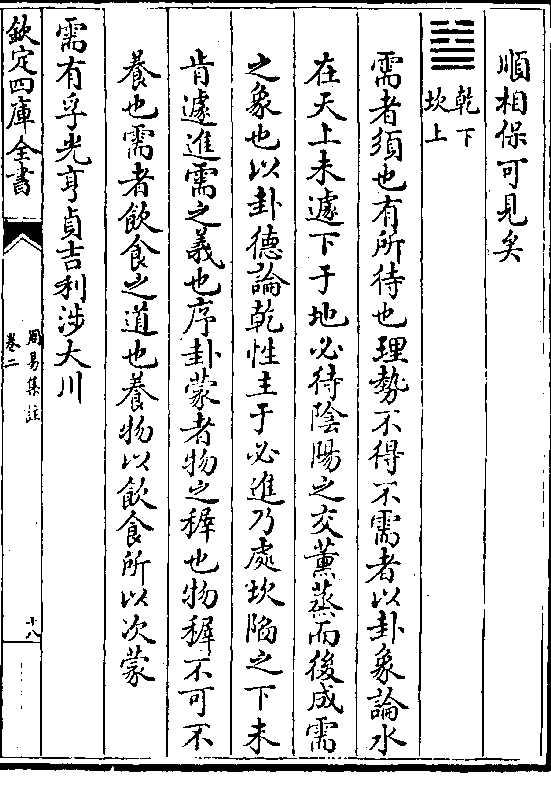 順相保可見矣
䷄乾下
坎上
需者須也有所待也理勢不得不需者以卦象論水
在天上未遽下于地必待陰陽之交薰蒸而後成需
之象也以卦德論乾性主于必進乃處坎陷之下未
肯遽進需之義也序卦蒙者物之穉也物穉不可不
養也需者飲食之道也養物以飲食所以次蒙
需有孚光亨貞吉利涉大川
欽定四庫全書
周易集註
卷二
十八